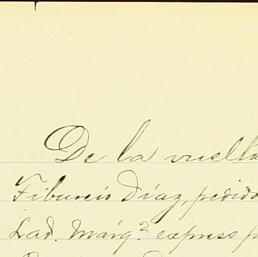 De la vuelta
Tiburcio Díaz, pedido
Lad. Marq.ᵃ express p